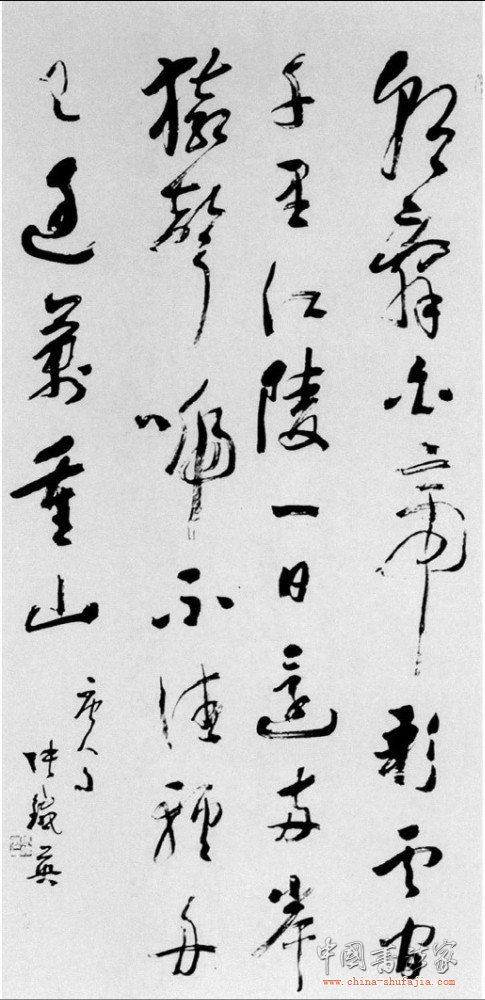 朝辭白帝彩云間
千里江陵一日還兩岸
猿聲啼不住輕舟
已過萬重山
唐人句
張鐵英
中國書法家
www.china-shufajia.com